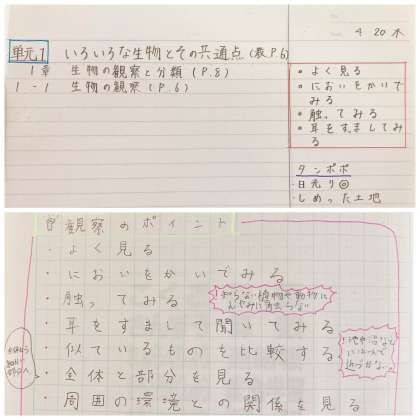 4 20 木
単元1 いろいろな生物とその共通点(教P.6)
1章 生物の観察と分類(P.8)
1-1 生物の観察(P.6)
・よく見る
・においをかいで
みる
・触ってみる
・耳をすましてみ
る
タンポポ
・日光り◎
・しめった土地
観察のポイント
・よく見る
・においをかいでみる。
・触ってみる
!知らない植物や動物に
むやみに触らない
・耳をすまして聞いてみる
・似ているものを比較する
・全体と部分を見る
・周囲の環境との関係を見る